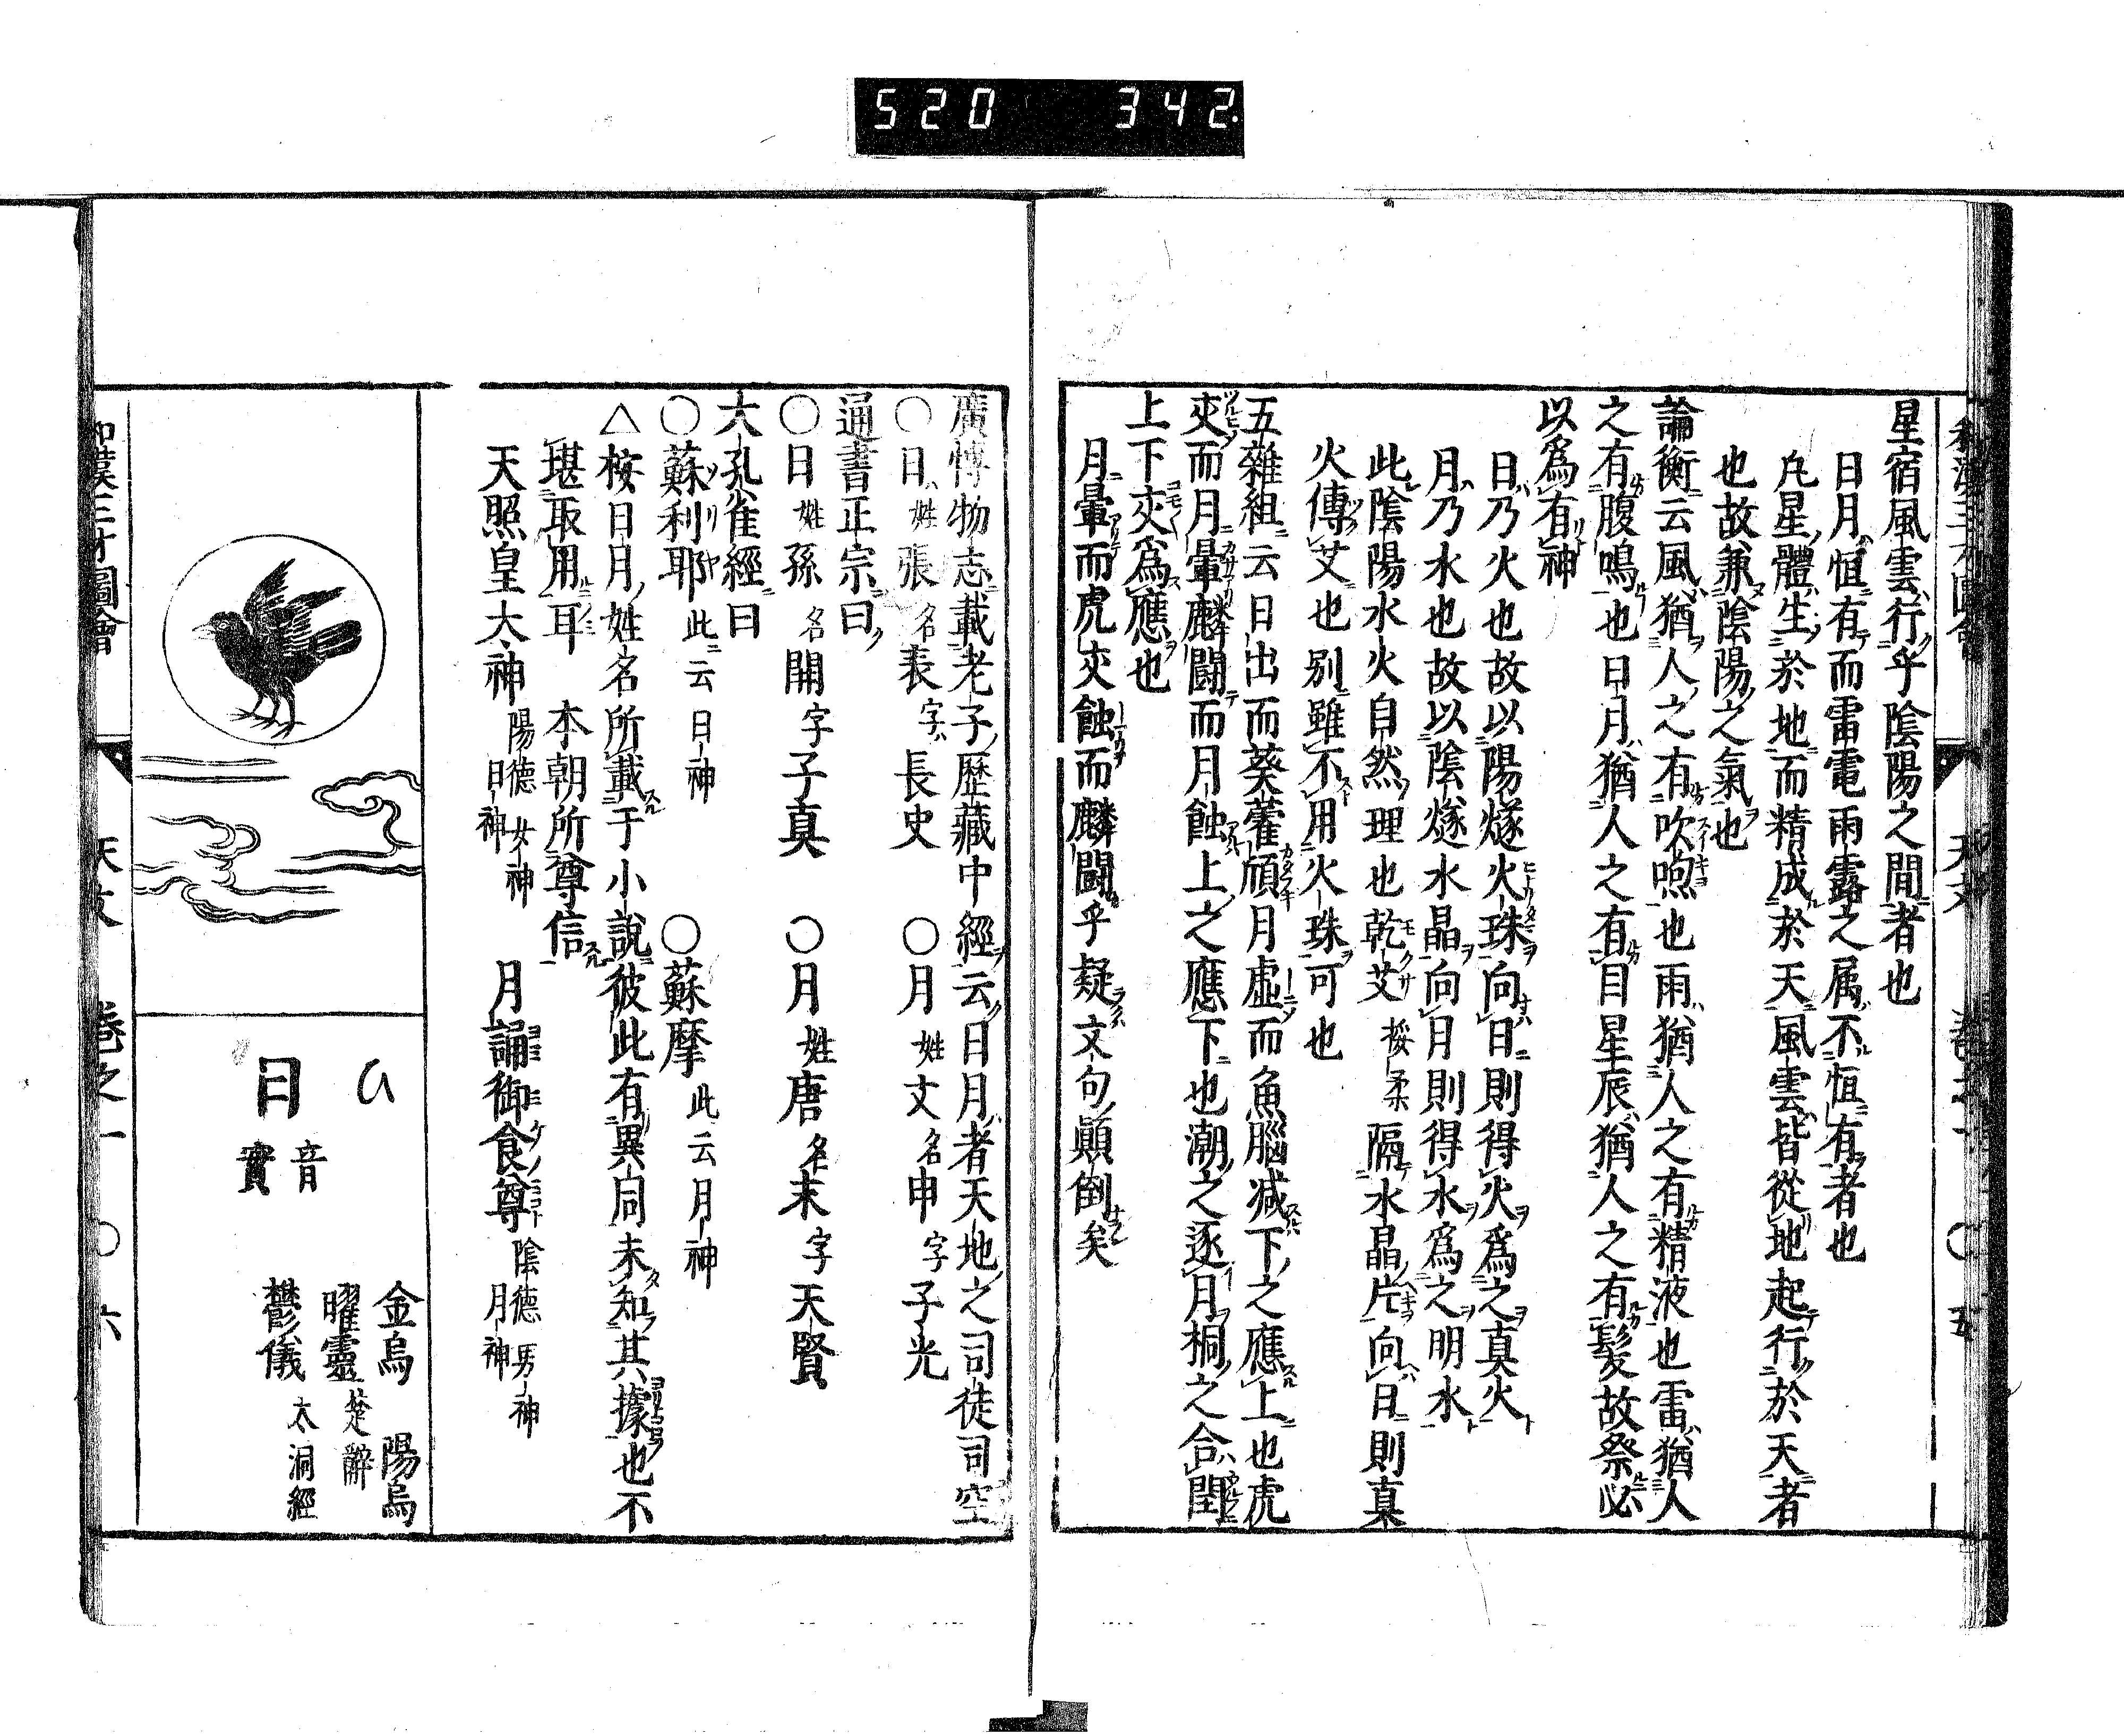 520 342.
天文
五
星宿風雲行乎陰陽之間者也
日月恒有而雷電雨露之属不恒有者也
凡星體生於地而精成於天風雲皆從地起行於天者
也故兼陰陽之氣也
論衡云風猶人之有吹喣也雨猶人之有精液也雷猶人
之有腹鳴也日月猶人之有目星辰猶人之有髮故祭必
以爲有神
日乃火也故以陽燧火珠向日則得火爲之真火
月乃水也故以陰燧水晶向月則得水爲之明水
此陰陽水火自然理也乾艾挼柔隔水晶片向日則真
火傳艾也别雖不用火珠可也
五雜組云日出而葵藿傾月虛而魚腦减下之應上也虎
交而月暈麟闘而月蝕上之應下也潮之逐月桐之合閏
上下交爲應也
月暈而虎交蝕而麟闘乎疑文句顚倒矣
廣博物志載老子歴藏中經云日月者天地之司徒司空
〇日姓張名表字長史 〇月姓文名申字子光
通書正宗曰
〇日姓孫名開字子真 〇月姓唐名末字天賢
大孔雀經曰
〇蘇利耶此云日神 〇蘇摩此云月神
△桉日月姓名所載于小說彼此有異同未知其據也不
堪取用耳 本朝所尊信
天照皇大神陽德女神日神 月誦御食尊陰德男神月神
日
音
實
金烏 陽烏
曜靈楚辭
鬱儀太洞經
和漢三才圖會
天文 卷之一 〇六